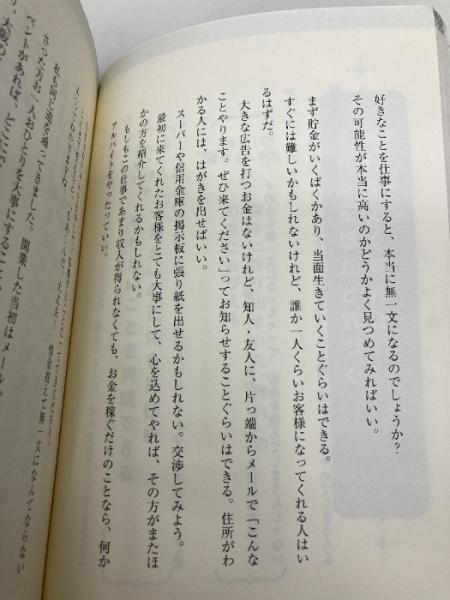 好きなことを仕事にすると、本当に無一文になるのでしょうか？
その可能性が本当に高いのかどうかよく見つめてみればいい。
まず貯金がいくばくかあり、当面生きていくことぐらいはできる。
すぐには難しいかもしれないけれど、誰か一人くらいお客様になってくれる人はい
るはずだ。
大きな広告を打つお金はないけれど、知人・友人に、片っ端からメールで「こんな
ことやります。ぜひ来てください」ってお知らせすることぐらいはできる。住所がわ
かる人には、はがきを出せばいい。
スーパーや信用金庫の掲示板に張り紙を出せるかもしれない。交渉してみよう。
最初に来てくれたお客様をとても大事にして、心を込めてやれば、その方がまたほ
かの方を紹介してくれるかもしれない。
もしもこの仕事であまり収入が得られなくても、お金を稼ぐだけのことなら、何か
アルバイトをやったっていい。
無一文になんてならない
私も同じ道を通ってきました。開業した当初はメール
さった方お一人おひとりを大事にすること
ベントがあれば、どこにで